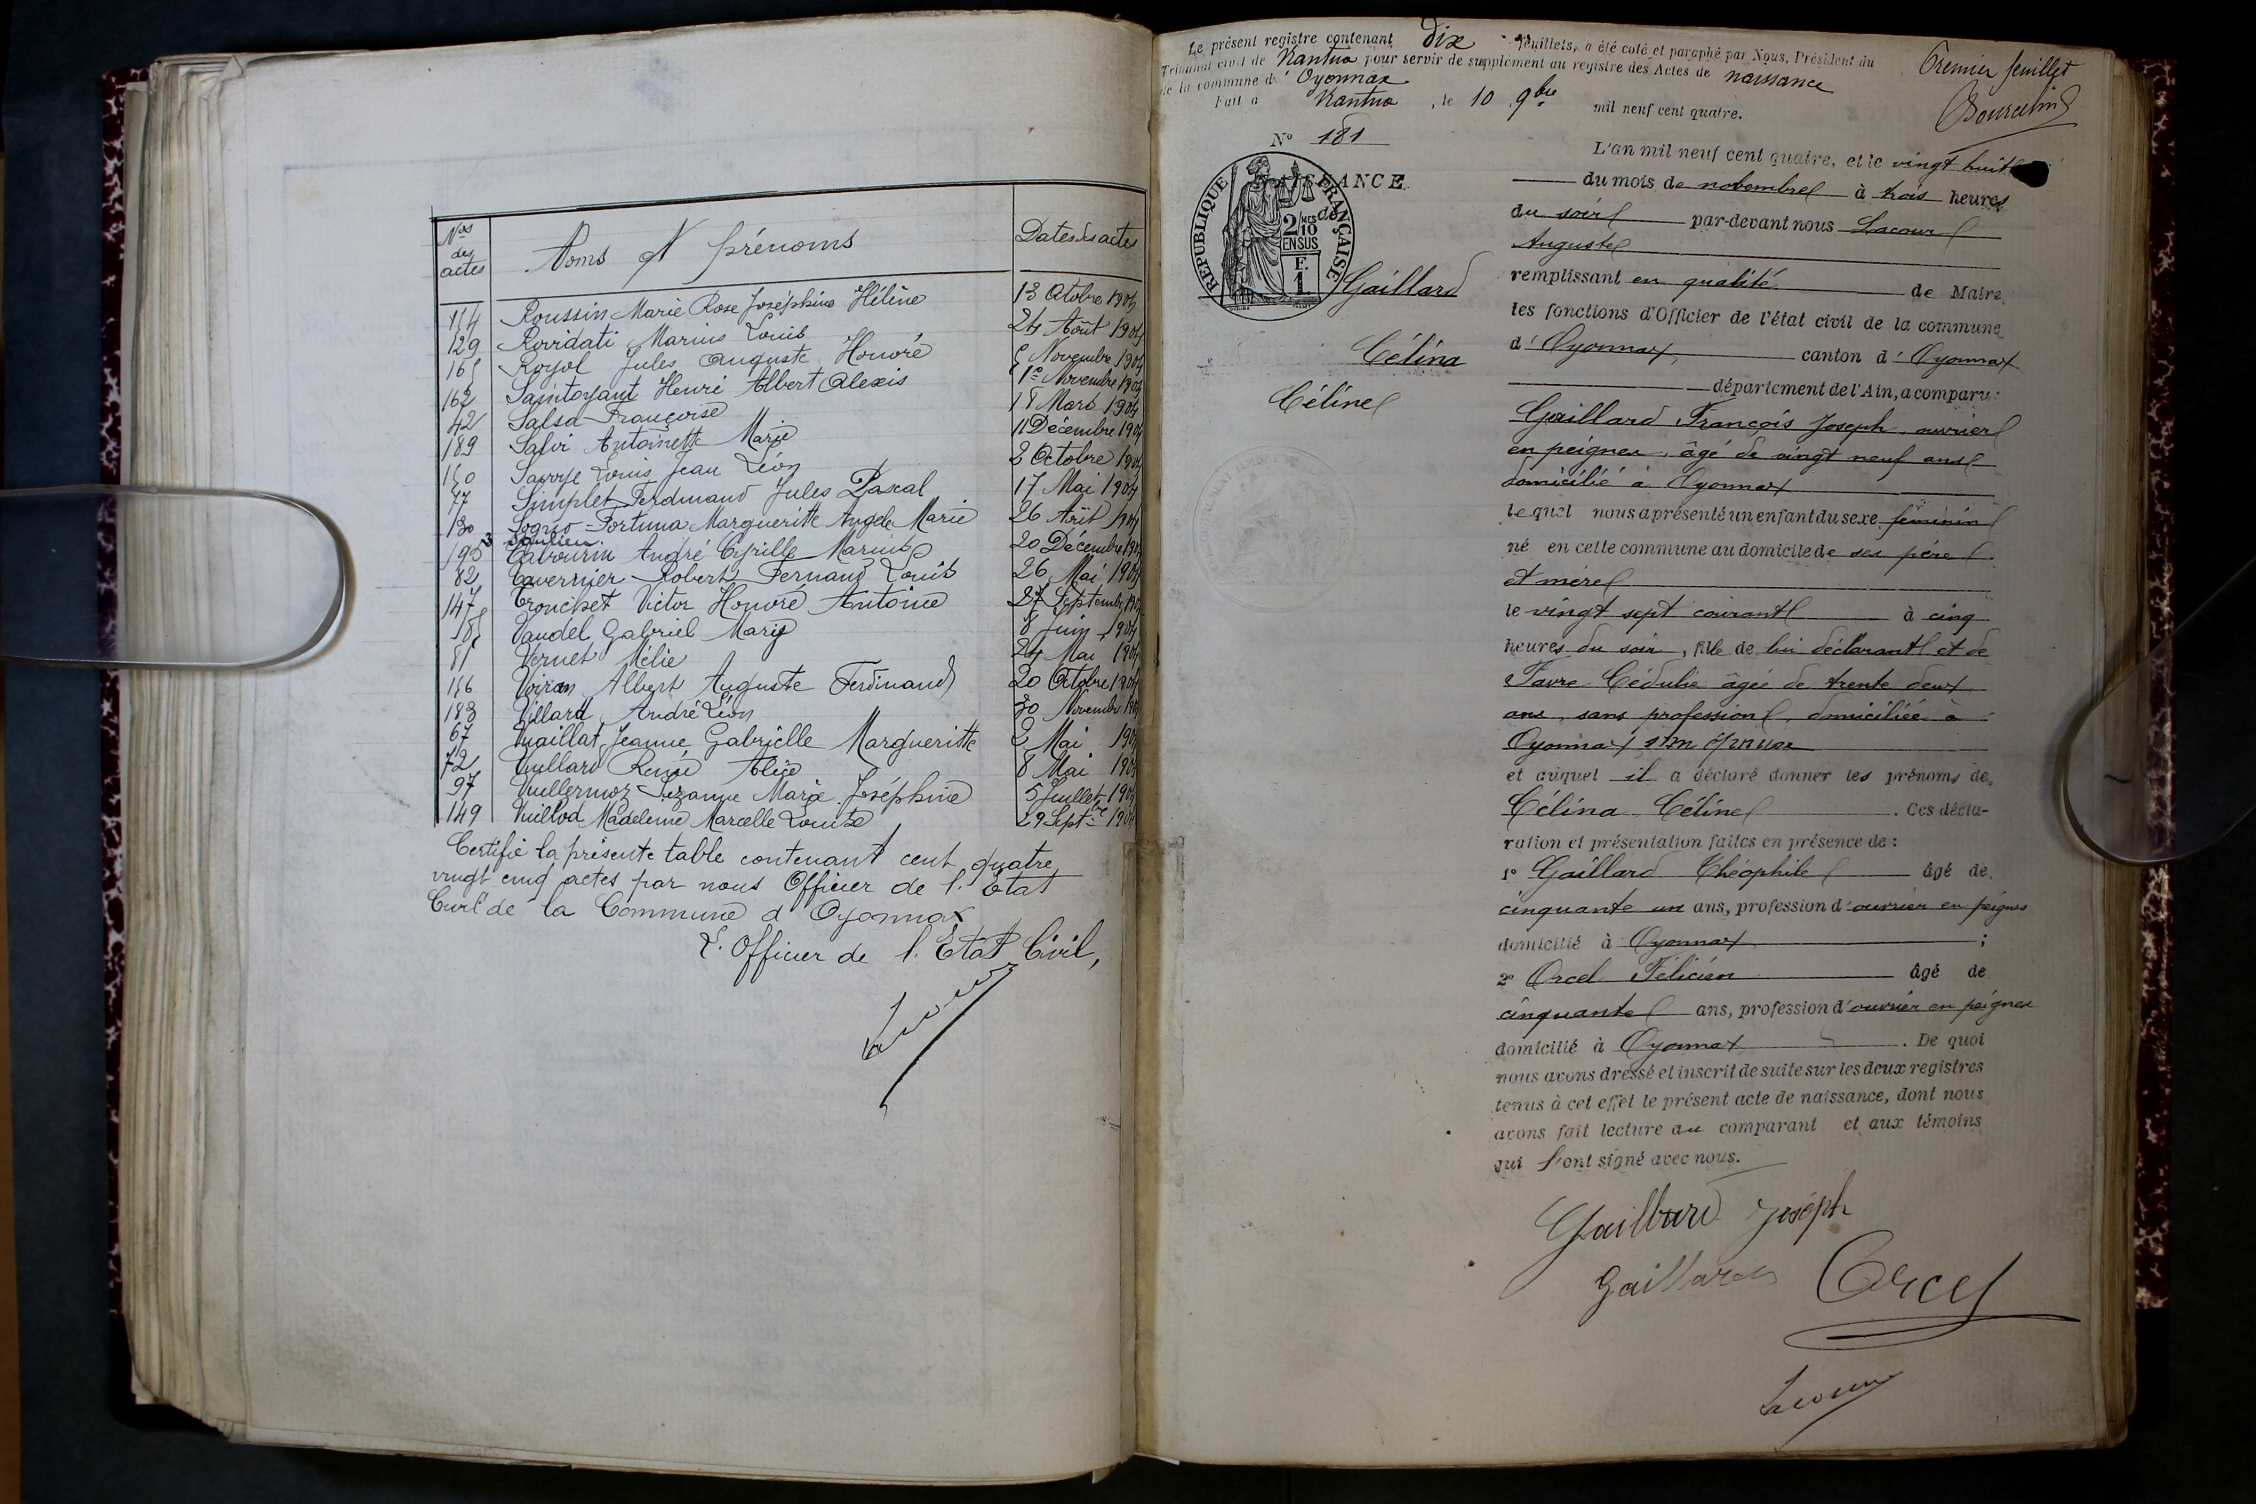 Nos des actes
Noms et prénoms
Dates des actes
154 Roussin Marie Rose Joséphine Hélène 13 Octobre 1904
129 Rovidati Marius Louis 24 Août 1904
165 Royol Jules Auguste Honoré 5 Novembre 1904
162 Saintoyant Henri Albert Alexis 1er Novembre 1904
42 Salsa Françoise 18 Mars 1904
189 Salvi Antoinette Marie 11 Décembre 1904
150 Savoye Louis Jean Léon 3 Octobre 1904
77 Simplet Ferdinand Jules Pascal 17 Mai 1904
130 Sogno-Fortuna Marguerite Angele Marie 26 Août 1904
3 Soulier
195 Tabourin André Cyrille Marius 20 Décembre 1904
82 Tavernier Robert Fernand Louis 26 Mai 1904
147 Tronchet Victor Honoré Antoine 27 Septembre 1904
85 Vaudel Gabriel Marie 8 Juin 1904
81 Vernet Mélie 24 Mai 1904
156 Voiran Albert Auguste Ferdinand 20 Octobre 1904
183 Villard André Léon 30 Novembre 1904
67 Vuaillat Jeanne Gabrielle Marguerite 2 Mai 1904
72 Vuillard Renée Alice 8 Mai 1904
97 Vuillermoz Suzanne Marie Joséphine 5 Juillet 1904
149 Vuillod Madeleine Marcelle Louise 29 Septbre 1904
Certifié la présente table contenant cent quatre
vingt cinq actes par nous Officier de l'Etat
Civil de la Commune d'Oyonnax
L'Officier de l'Etat Civil,
Lacour
Le présent registre contenant dix feuillets, a été coté et paraphé par Nous, Président du
Tribunal civil de Nantua pour servir de supplément au registre des Actes de naissance
de la commune d'Oyonnax
Fait à Nantua, le 10 9bre mil neuf cent quatre.
Premier feuillet
No 181
NAISSANCE
RÉPUBLIQUE FRANÇAISE
2/10 MES
EN SUS
F.
1
de
Gaillard
Célina
Céline
L'an mil neuf cent quatre, et le vingt huit
du mois de novembre à trois heures
du soir par-devant nous Lacour
Auguste
remplissant en qualité de Maire
les fonctions d'Officier de l'état civil de la commune
d'Oyonnax, canton d'Oyonnax
département de l'Ain, a comparu:
Gaillard François Joseph, ouvrier
en peignes, âgé de vingt neuf ans
domicilié à Oyonnax
lequel nous a présenté un enfant du sexe féminin
né en cette commune au domicile de ses père
et mère
le vingt sept courant à cinq
heures du soir, fille de lui déclarant et de
Favre Cédulie âgée de trente deux
ans, sans profession, domiciliée à
Oyonnax son épouse
et auquel il a déclaré donner les prénoms de
Célina Céline. Ces décla-
ration et présentation faites en présence de:
1o Gaillard Théophile âgé de
cinquante un ans, profession d'ouvrier en peignes
domicilié à Oyonnax;
2o Orcel Félicien âgé de
cinquante ans, profession d'ouvrier en peignes
domicilié à Oyonnax. De quoi
nous avons dressé et inscrit de suite sur les deux registres
tenus à cet effet le présent acte de naissance, dont nous
avons fait lecture au comparant et aux témoins
qui l'ont signé avec nous.
Gaillard Joseph
Gaillard Orcel
Lacour